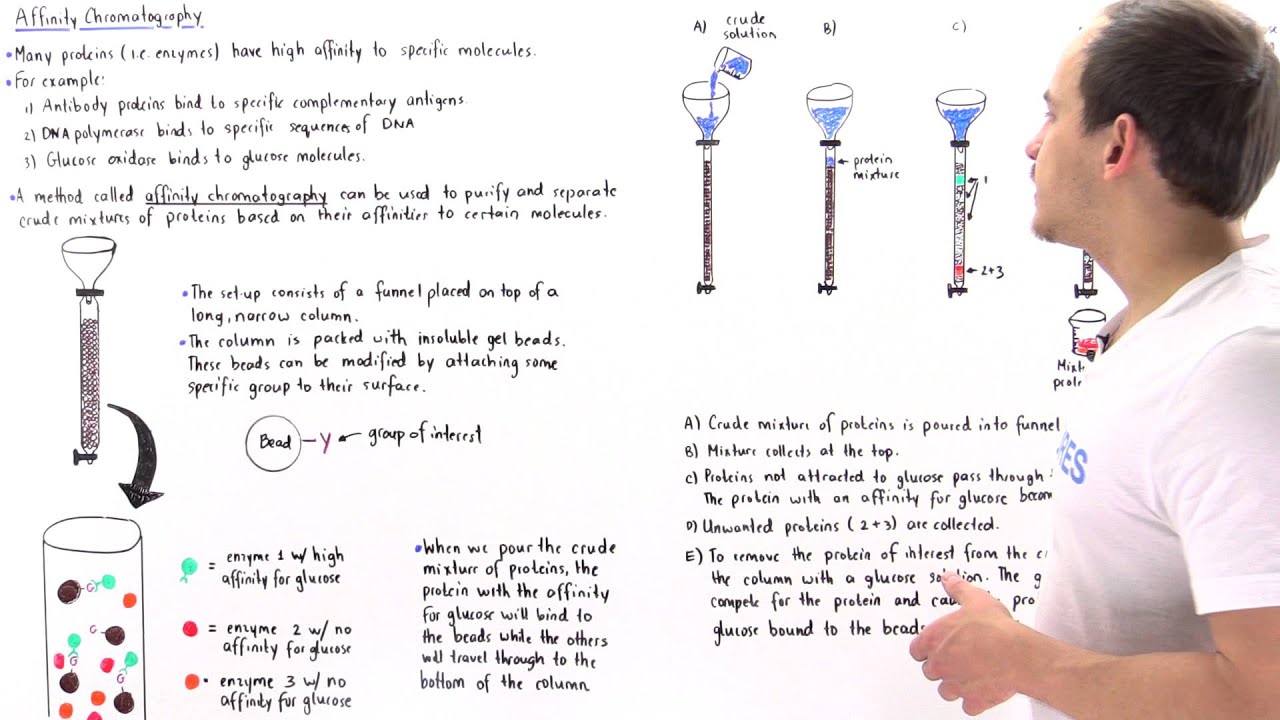 Affinity Chromatography
• Many proteins (i.e. enzymes) have high affinity to specific molecules.
• For example:
1) Antibody proteins bind to specific complementary antigens.
2) DNA polymerase binds to specific sequences of DNA
3) Glucose oxidase binds to glucose molecules.
• A method called affinity chromatography can be used to purify and separate
crude mixtures of proteins based on their affinities to certain molecules.
• The set-up consists of a funnel placed on top of a
long, narrow column.
• The column is packed with insoluble gel beads.
These beads can be modified by attaching some
specific group to their surface.
Bead - Y ← group of interest
G
G
G
G
= enzyme 1 w/ high
affinity for glucose
= enzyme 2 w/ no
affinity for glucose
• enzyme 3 w/ no
affinity for glucose
• When we pour the crude
mixture of proteins, the
protein with the affinity
for glucose will bind to
the beads while the others
will travel through to the
bottom of the column
A) crude
solution
B)
C)
protein
mixture
1
2+3
A) Crude mixture of proteins is poured into funnel
B) Mixture collects at the top.
C) Proteins not attracted to glucose pass through
The protein with an affinity for glucose
D) Unwanted proteins (2+3) are collected.
E) To remove the protein of interest from the
the column with a glucose solution. The
compete for the protein and
glucose bound to the beads
RES